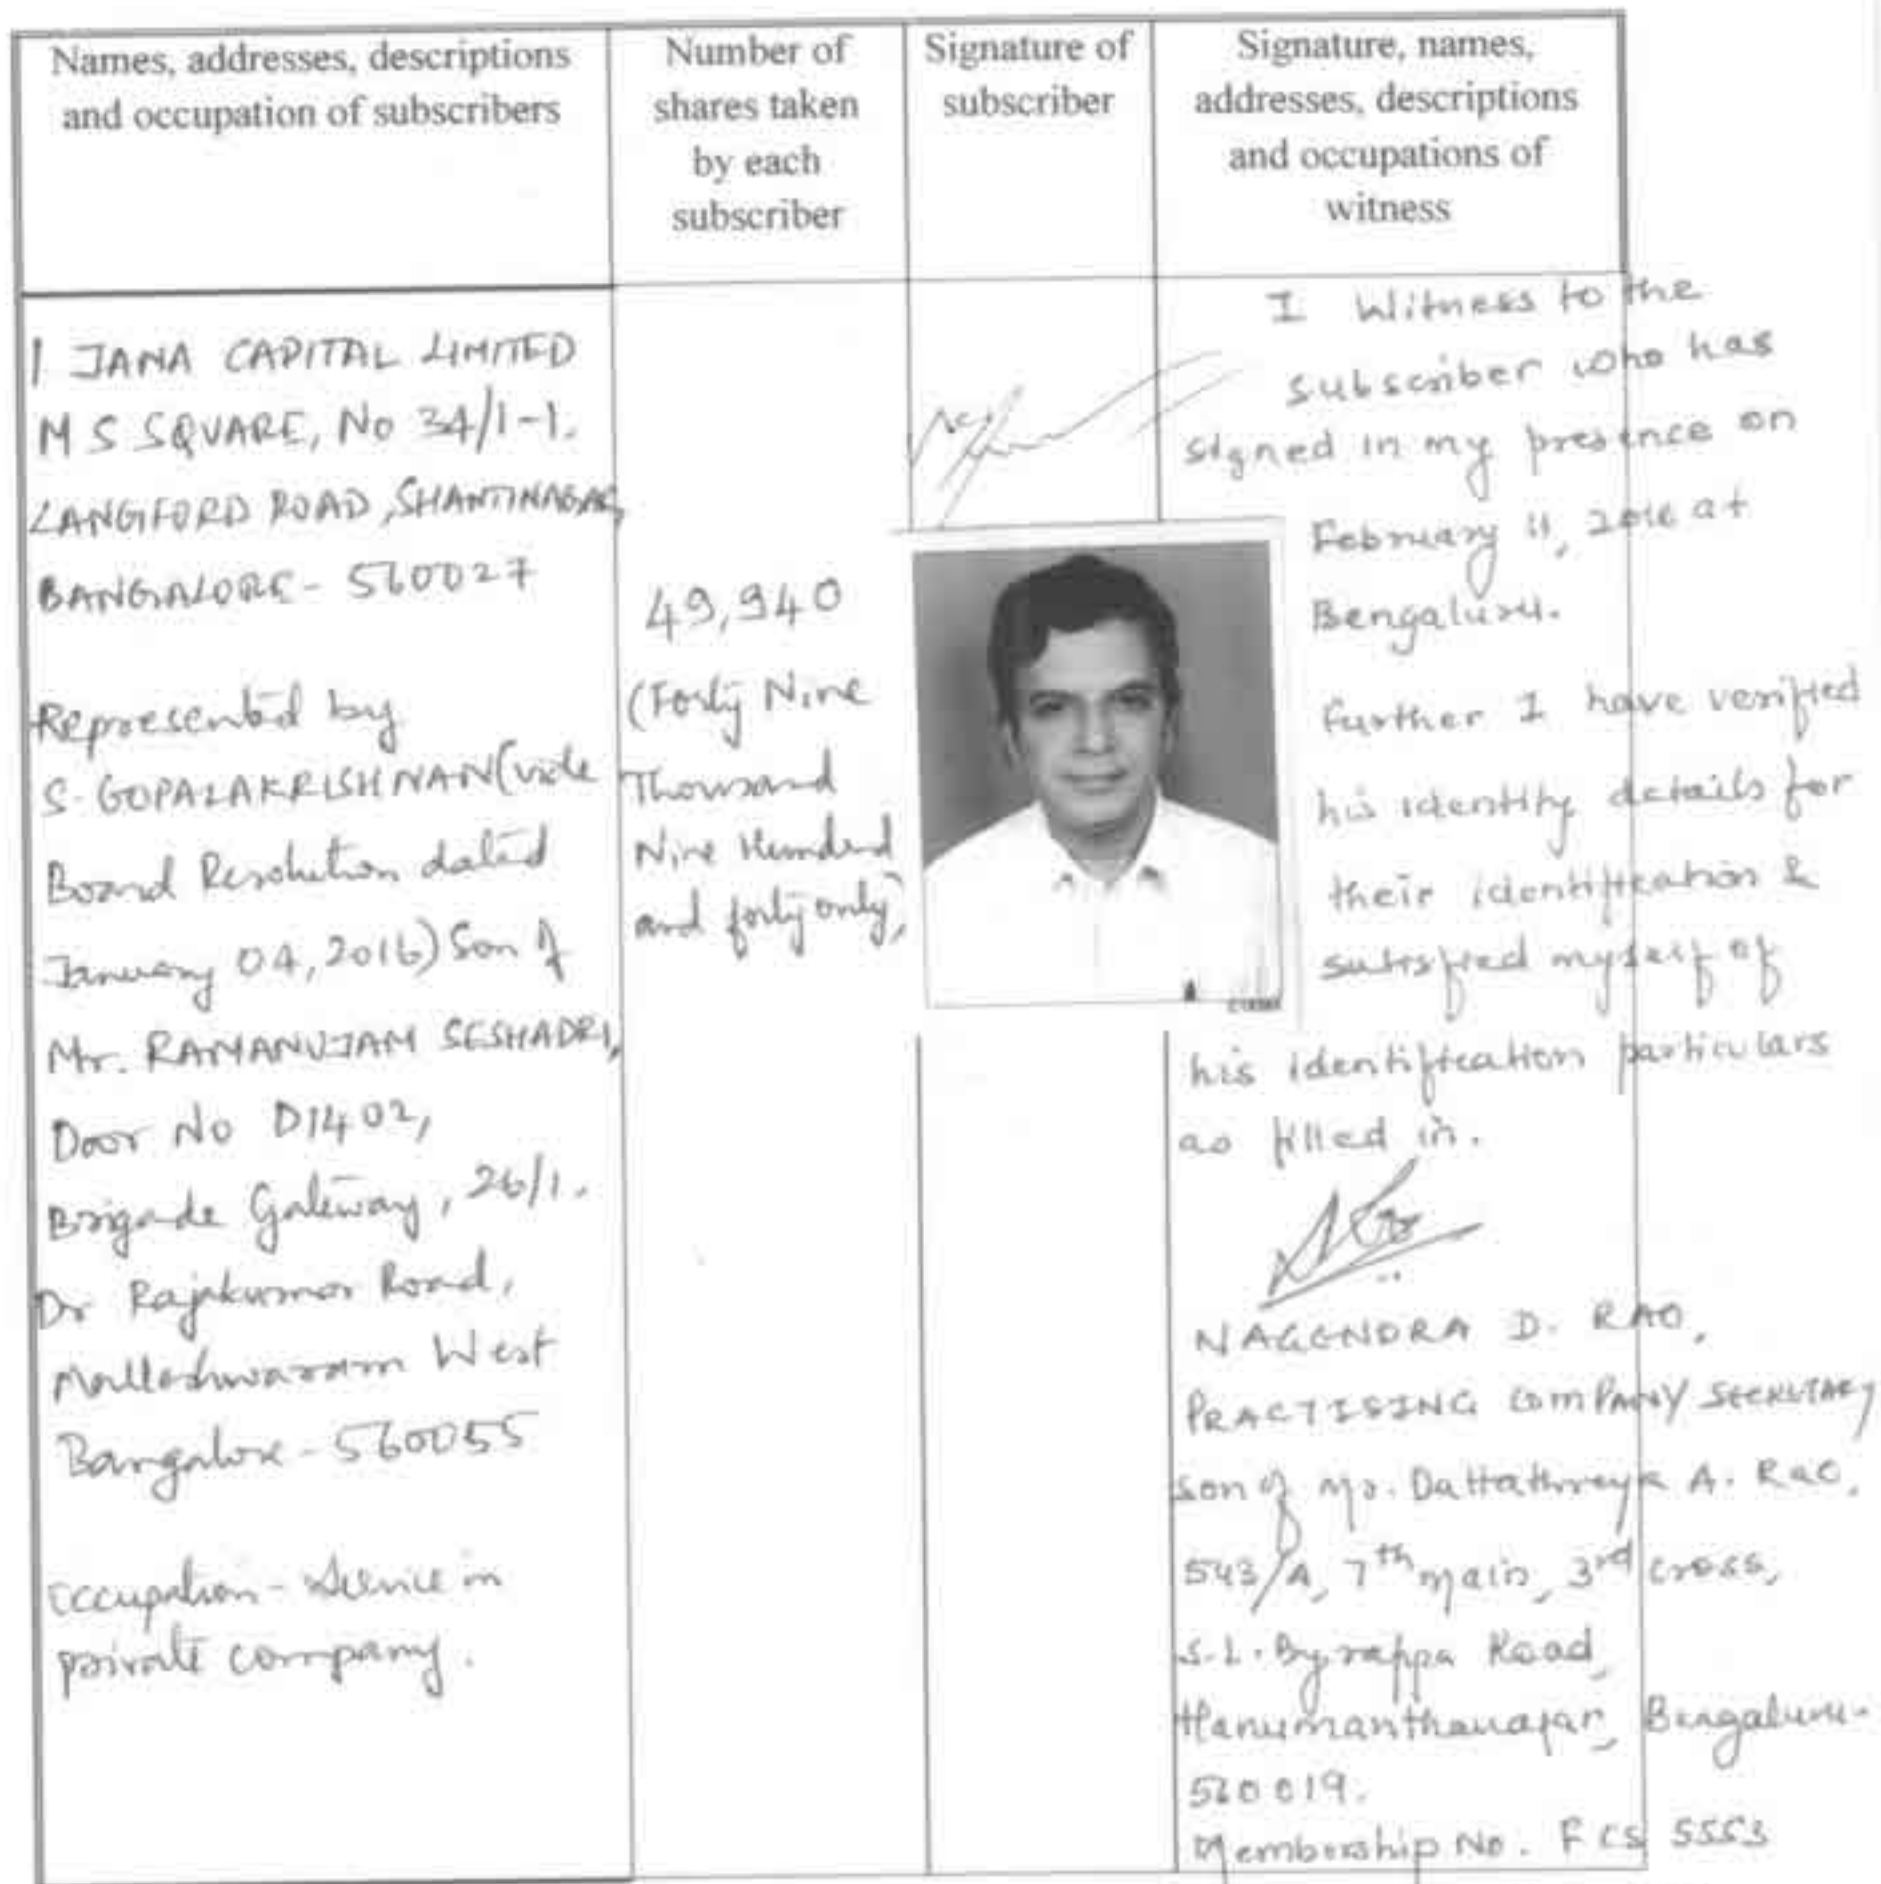 Names, addresses, descriptions
and occupation of subscribers
Number of
shares taken
by each
subscriber
Signature of
subscriber
Signature, names,
addresses, descriptions
and occupations of
witness
1 JANA CAPITAL LIMITED
M S SQUARE, No 34/1-1.
LANGFORD ROAD, SHANTINAGAR,
BANGALORE - 560027
Represented by
S. GOPALAKRISHNAN (vide
Board Resolution dated
January 04, 2016) Son of
Mr. RAMANUJAM SESHADRI,
Door No D1402,
Brigade Gateway, 26/1.
Dr Rajakumar Road,
Malleshwaram West
Bangalore - 560055
Occupation - Service in
private company.
49,940
(Forty Nine
Thousand
Nine Hundred
and forty only)
I Witness to the
subscriber who has
signed in my presence on
February 11, 2016 at
Bengaluru.
Further I have verified
his identity details for
their identification &
satisfied myself of
his identification particulars
as filled in.
NAGENDRA D. RAO,
PRACTISING COMPANY SECRETARY
son of Mr. Dattathreya A. Rao,
543/A, 7th main, 3rd cross,
S.L. Byrappa Road,
Hanumanthanagar, Bengaluru-
560019.
Membership No. FCS 5553